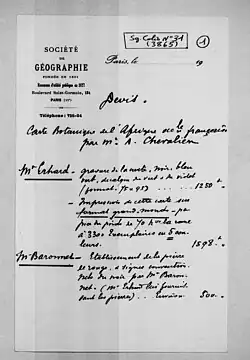 Sg. Colis N° 31
(3865)
1
SOCIÉTÉ
DE
GÉOGRAPHIE
FONDÉE EN 1821
Reconnue d'utilité publique en 1827
Boulevard Saint-Germain, 184
PARIS (VIe)
Téléphone : 726-54
Paris, le 19
Devis.
Carte Botanique de l'Afrique occle française
par Mr. A. Chevalier
Mr Erhard. - gravure de la carte, noir, bleu
(format 75 x 95) 1250
- Impression de cette carte sur
format grand-monde - pa-
pier du poids de 70 kos la rame
à 3300 Exemplaires en 5 cou-
leurs. 1598.
Mr Baronnet - Etablissement de la pierre
de rouge, à signes convention-
nels du noir par Mr Baron-
net. (Mr Erhard devra fournir
les pierres) environ 500.